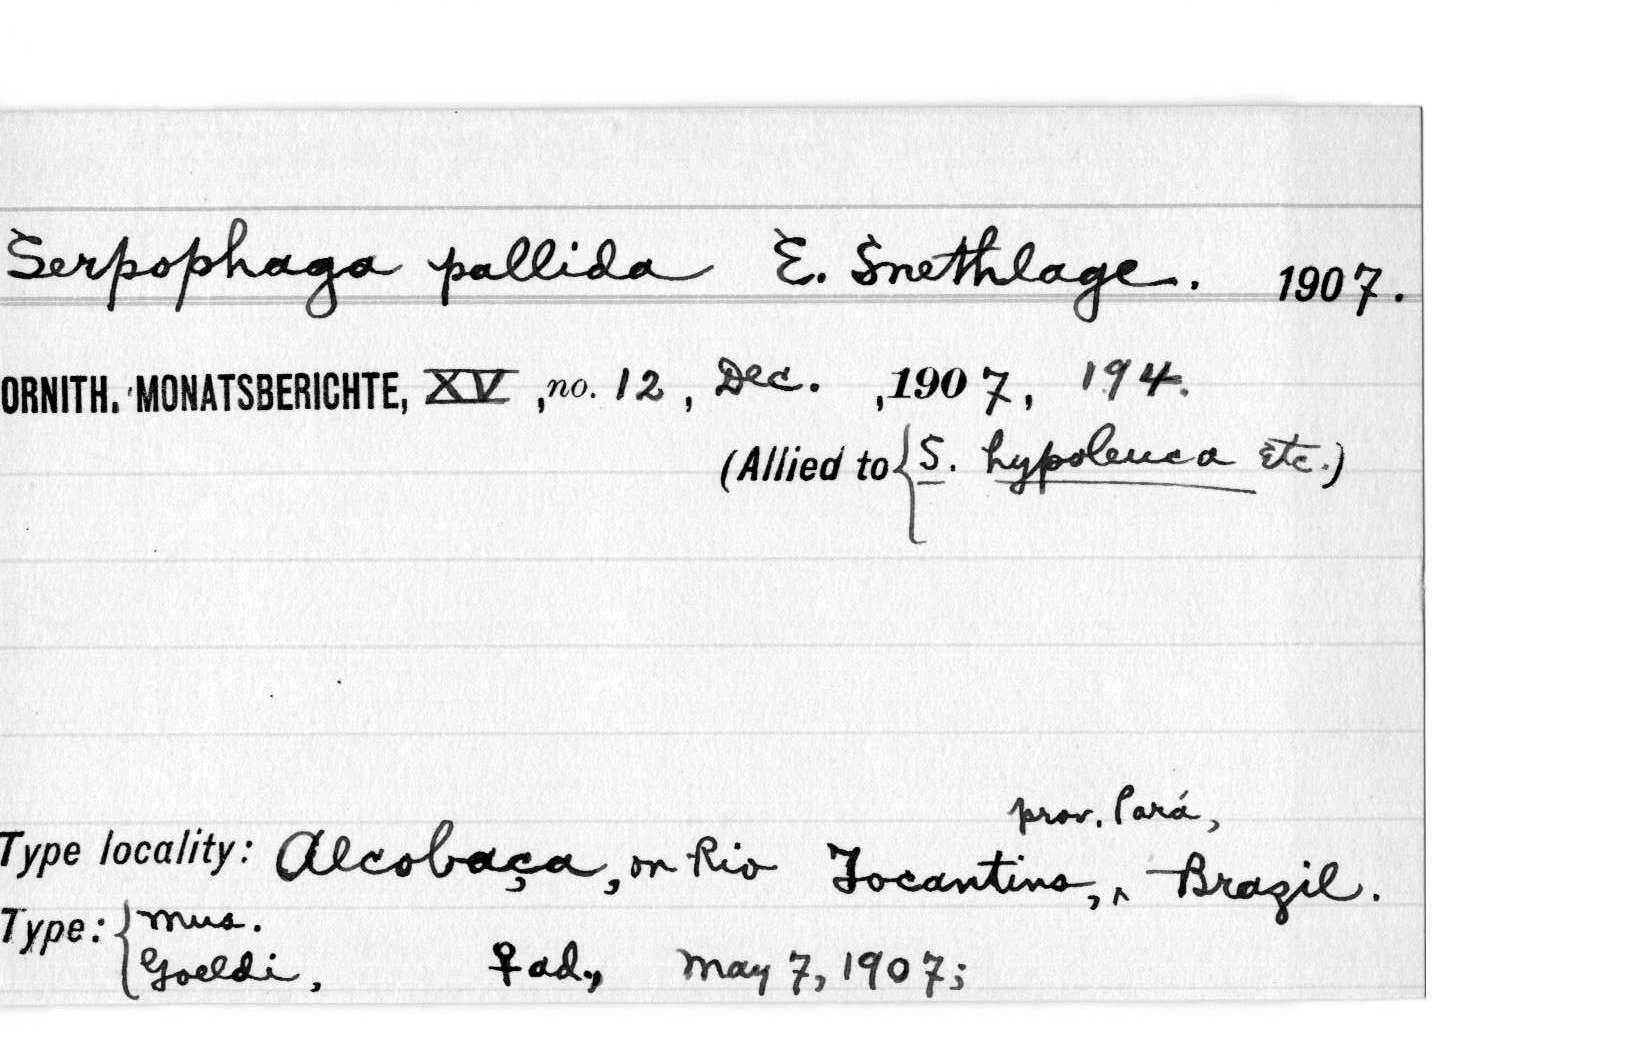 Serpophaga pallida E. Snethlage. 1907.
ORNITH. MONATSBERICHTE, XV, no. 12, Dec., 1907, 194.
(Allied to { S. hypoleuca etc.)
prov. Pará,
Type locality: Alcobaça, on Rio Tocantins, ^ Brazil.
Type: { Mus.
Goeldi, ♀ ad., May 7, 1907;